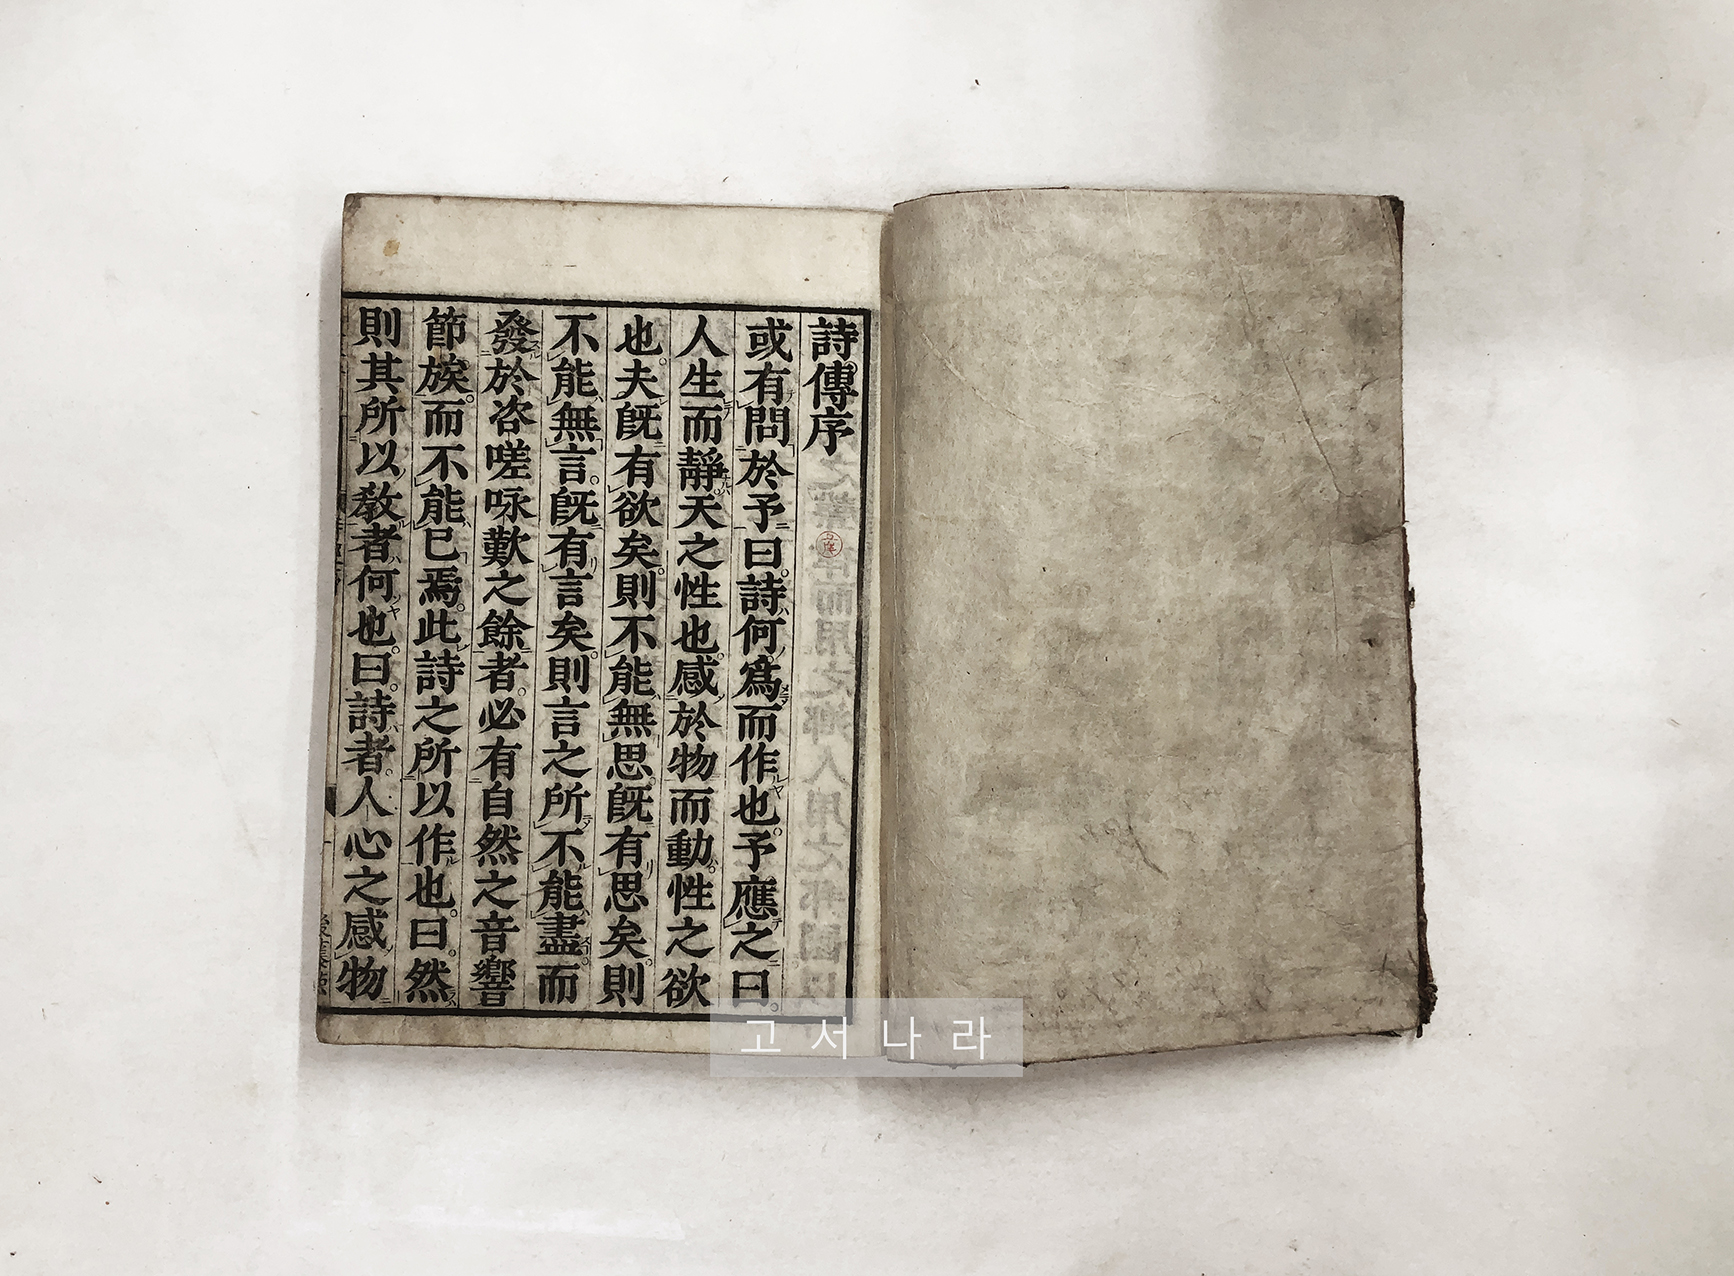 詩傳序
或有問於予曰詩何爲而作也予應之曰
人生而靜天之性也感於物而動性之欲
也夫旣有欲矣則不能無思旣有思矣則
不能無言旣有言矣則言之所不能盡而
發於咨嗟咏歎之餘者必有自然之音響
節族而不能已焉此詩之所以作也曰然
則其所以敎者何也曰詩者人心之感物
고서나라